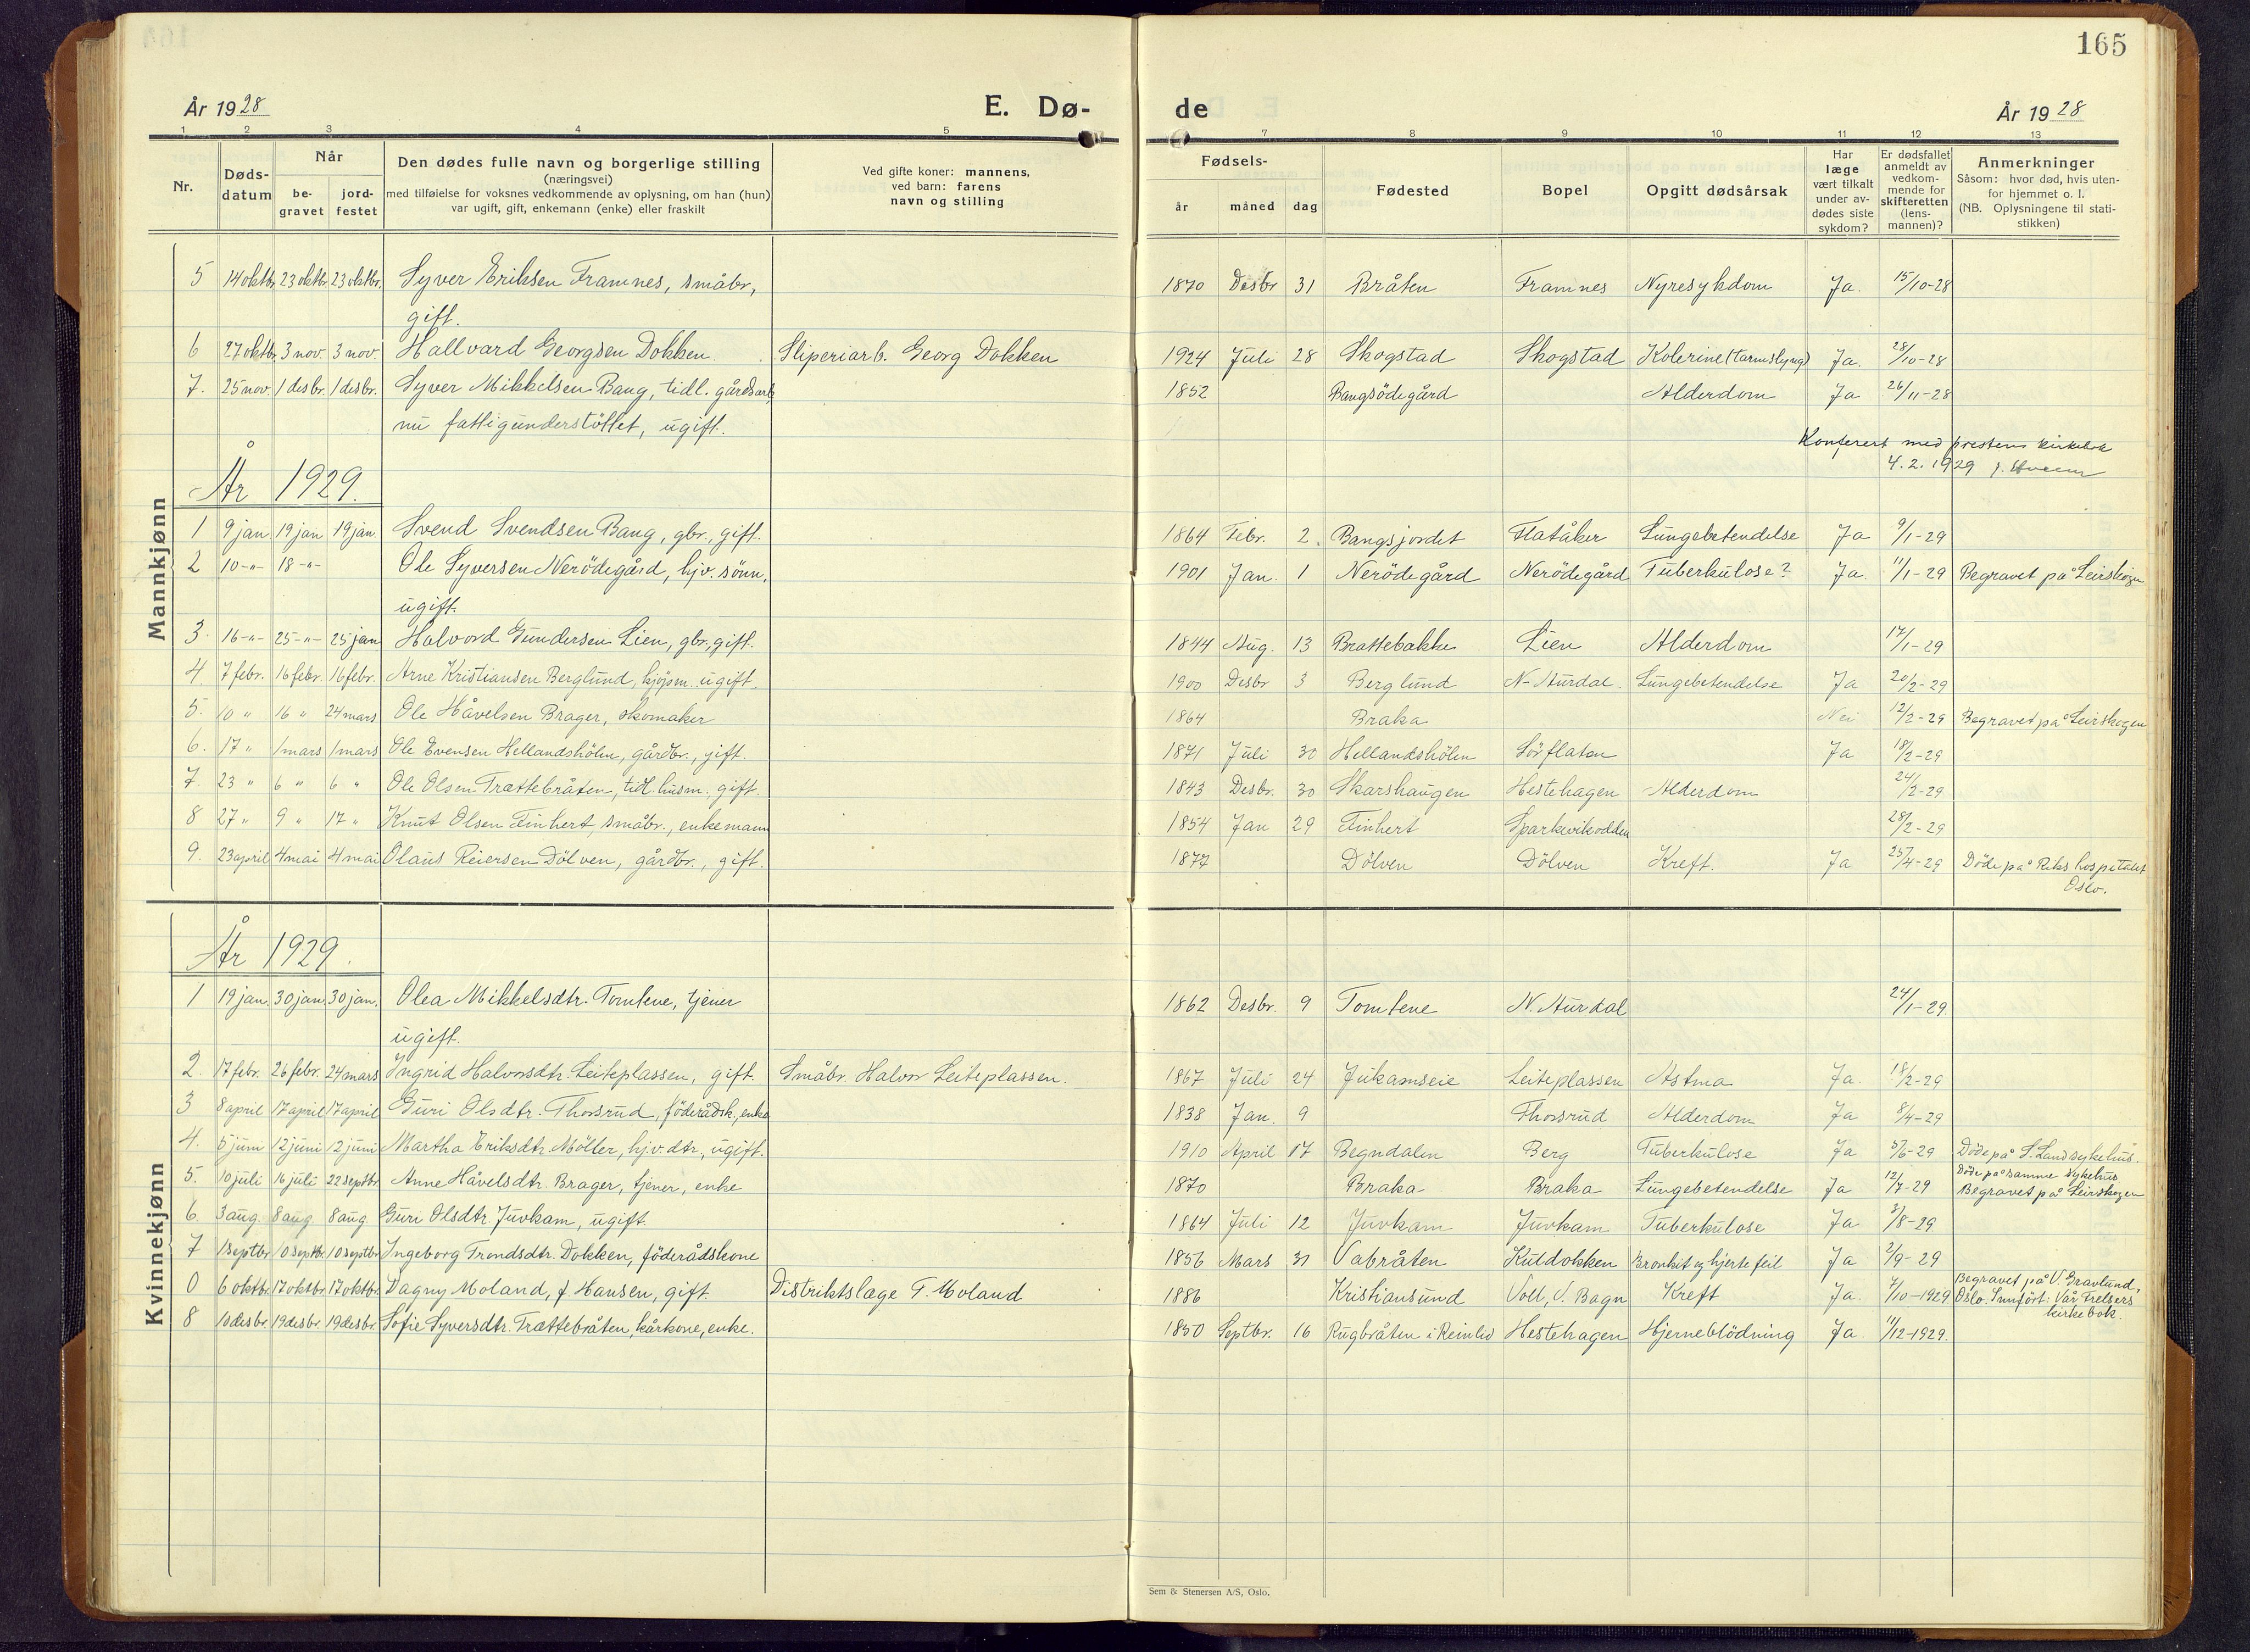 165
År 1928 E. Dø-de År 1928
1 2 3 4 5 7 8 9 10 11 12 13
Nr.
Døds-datum
Når
be-gravet
jord-festet
Den dødes fulle navn og borgerlige stilling
(næringsvei)
med tilføielse for voksnes vedkommende av oplysning, om han (hun)
var ugift, gift, enkemann (enke) eller fraskilt
Ved gifte koner: mannens,
ved barn: farens
navn og stilling
Fødsels-
år måned dag
Fødested
Bopel
Opgitt dødsårsak
Har
læge
vært tilkalt
under av-
dødes siste
sykdom?
Er dødsfallet
anmeldt av
vedkom-
mende for
skifteretten
(lens-
mannen)?
Anmerkninger
Såsom: hvor død, hvis uten-
for hjemmet o. l.
(NB. Oplysningene til stati-
stikken)
Mannkjønn
5 14 oktbr. 23 oktbr. 23 oktbr. Syver Eriksen Framnes, småbr., 1870 Desbr 31 Bråten Framnes Nyresykdom Ja. 15/10-28
gift.
6 27 oktbr. 3 nov. 3 nov. Hallvard Georgsen Dokken Sliperiarb. Georg Dokken 1924 Juli 28 Skogstad Skogstad Kolerine (tarmslyng) Ja. 28/10-28
7. 25 nov. 1 desbr. 1 desbr. Syver Mikkelsen Bang, tidl. gårdsarb. 1852 Bangsödegård Alderdom Ja 26/11-28
nu fattigunderstöttet, ugift.
Konferert med prestens kirkebok
4.2.1929
År 1929.
1 9 jan. 19 jan 19 jan. Svend Svendsen Bang, gbr., gift. 1864 Febr. 2. Bangsjordet Flatåker Lungebetendelse Ja 9/1-29
2 10 -"- 18 -"- Ole Syversen Nerödegård, hjv. sönn, 1901 Jan. 1 Nerödegård Nerödegård Tuberkulose? Ja. 11/1-29 Begravet på Leirskogen
ugift.
3. 16 -"- 25 -"- 25 jan Halvord Gundersen Lien, gbr., gift. 1844 Aug. 13 Brattebakke Lien Alderdom 17/1-29
4. 7 febr. 16 febr. 16 febr. Arne Kristiansen Berglund, kjöjsm. ugift. 1900 Desbr 3 Berglund N-Aurdal. Lungebetendelse Ja 20/2-29
5. 10 " 16 " 24 mars Ole Håvelsen Brager, skomaker 1864 Braka Nei 12/2-29 Begravet på Leirskogen
6. 17 " 1 mars 1 mars Ole Evensen Hellandshölen, gårdbr., gift. 1871 Juli 30 Hellandshölen Sörflaten Ja 18/2-29
7. 23 " 6 " 6 " Ole Olsen Trættebråten, tidl. husm. gift. 1843 Desbr. 30 Skarshaugen Hestehagen Alderdom 24/2-29
8 27 " 9 " 17 " Knut Olsen Finhert, småbr., enkemann 1854 Jan 29 Finhert Sparkevikodden 28/2-29
9. 23 april 4 mai 4 mai Olaus Reiersen Dölven, gårdbr., gift. 1877 Dölven Dölven Kreft. Ja 25/4-29 Döde på Rikshospitalet
Oslo.
Kvinnekjønn
År 1929.
1 19 jan. 30 jan. 30 jan. Olea Mikkelsdtr. Tomtene, tjener 1862 Desbr. 9 Tomtene N. Aurdal 24/1-29.
ugift.
2. 17 febr. 26 febr. 24 mars Ingrid Halvorsdtr. Leiteplassen, gift. Småbr. Halvor Leiteplassen. 1867 Juli 24 Juikamseie Leiteplassen Astma Ja. 18/2-29
3 8 april 17 april 17 april Guri Olsdtr. Thorsrud, föderådsk., enke 1838 Jan. 9 Thorsrud Alderdom Ja 8/4-29
4. 5 juni 12 juni 12 juni Martha Eriksdtr. Möller, hjv. dtr., ugift. 1910 April 17 Begndalen Berg Tuberkulose Ja 5/6-29 Döde på S. Land sykehus.
5. 10 juli 16 juli 22 septbr. Anne Håvelsdtr. Brager, tjener, enke 1870 Braka Braka Lungebetendelse Ja 12/7-29 Döde på samme sykehus
Begravet på Leirskogen
6 3 aug. 8 aug. 8 aug. Guri Olsdtr. Juvkam, ugift. 1864 Juli 12 Juvkam Juvkam Tuberkulose Ja 3/8-29
7 1 septbr. 10 septbr. 10 septbr. Ingeborg Trondsdtr. Dokken, föderådskone 1856 Mars 31 Vabråten Kuldokken Bronkit og hjertefeil Ja 2/9-29
0 6 oktbr. 17 oktbr. 17 oktbr. Dagny Moland, f. Hansen, gift. Distriktslæge T. Moland 1886 Kristiansund Voll, V. Bagn Kreft Ja. 7/10-1929 Begravet på V. Gravlund,
Oslo. Innfört: Vår Frelsers
kirkebok.
8 10 desbr. 19 desbr. 19 desbr. Sofie Syversdtr. Trættebråten, kårkone, enke. 1850 Septbr. 16 Rugbråten i Reinlid Hestehagen Hjerneblödning Ja 11/12-1929.
Sem & Stenersen A/S, Oslo.